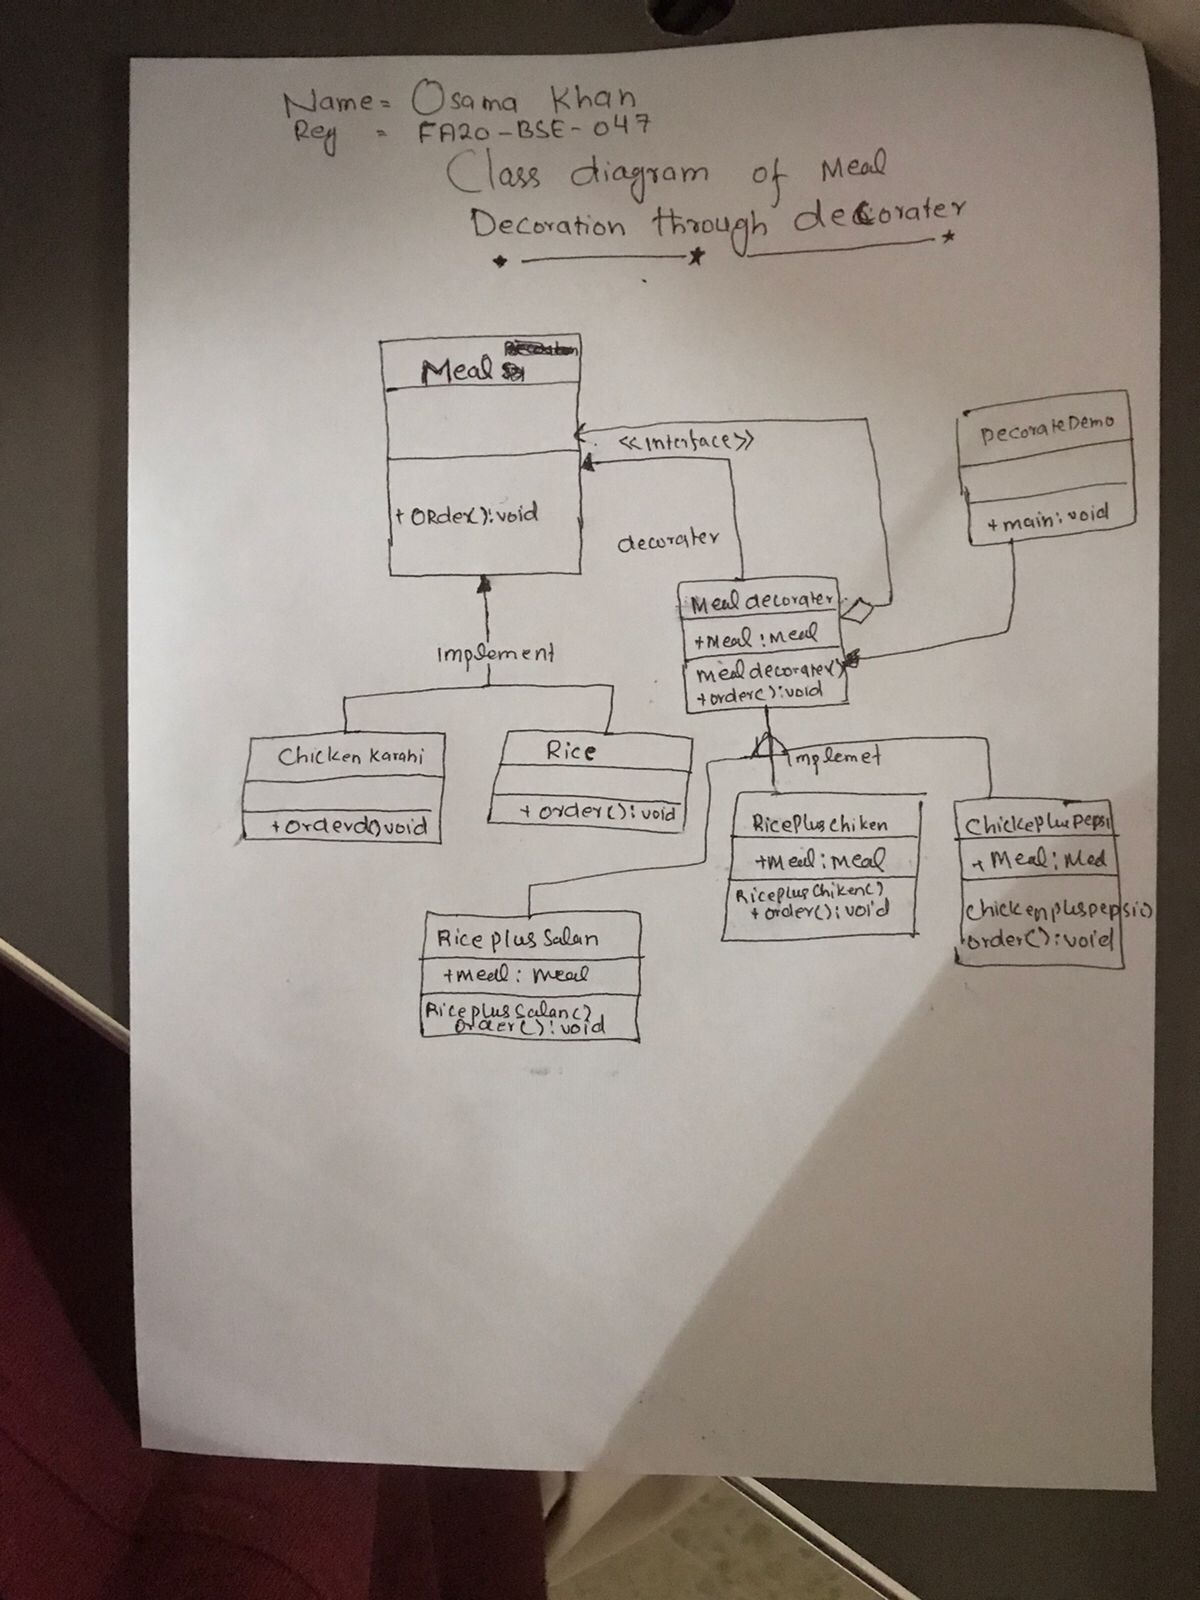 Name = Osama Khan
Reg = FA20-BSE-047
Class diagram of Meal
Decoration through decorater
Meal
+ ORder(): void
<<interface>>
decorater
DecorateDemo
+ main: void
Meal decorater
+Meal: Meal
mealdecorater()
+order(): void
implement
Chicken Karahi
+orderd() void
Rice
+ order(): void
implemet
RicePlus Chiken
+Meal: Meal
Riceplus Chiken()
+ order(): void
Chickeplus pepsi
+ Meal: Meal
Chickenpluspepsi()
order(): void
Rice plus Salan
+meal: meal
Rice plus Salan()
order(): void